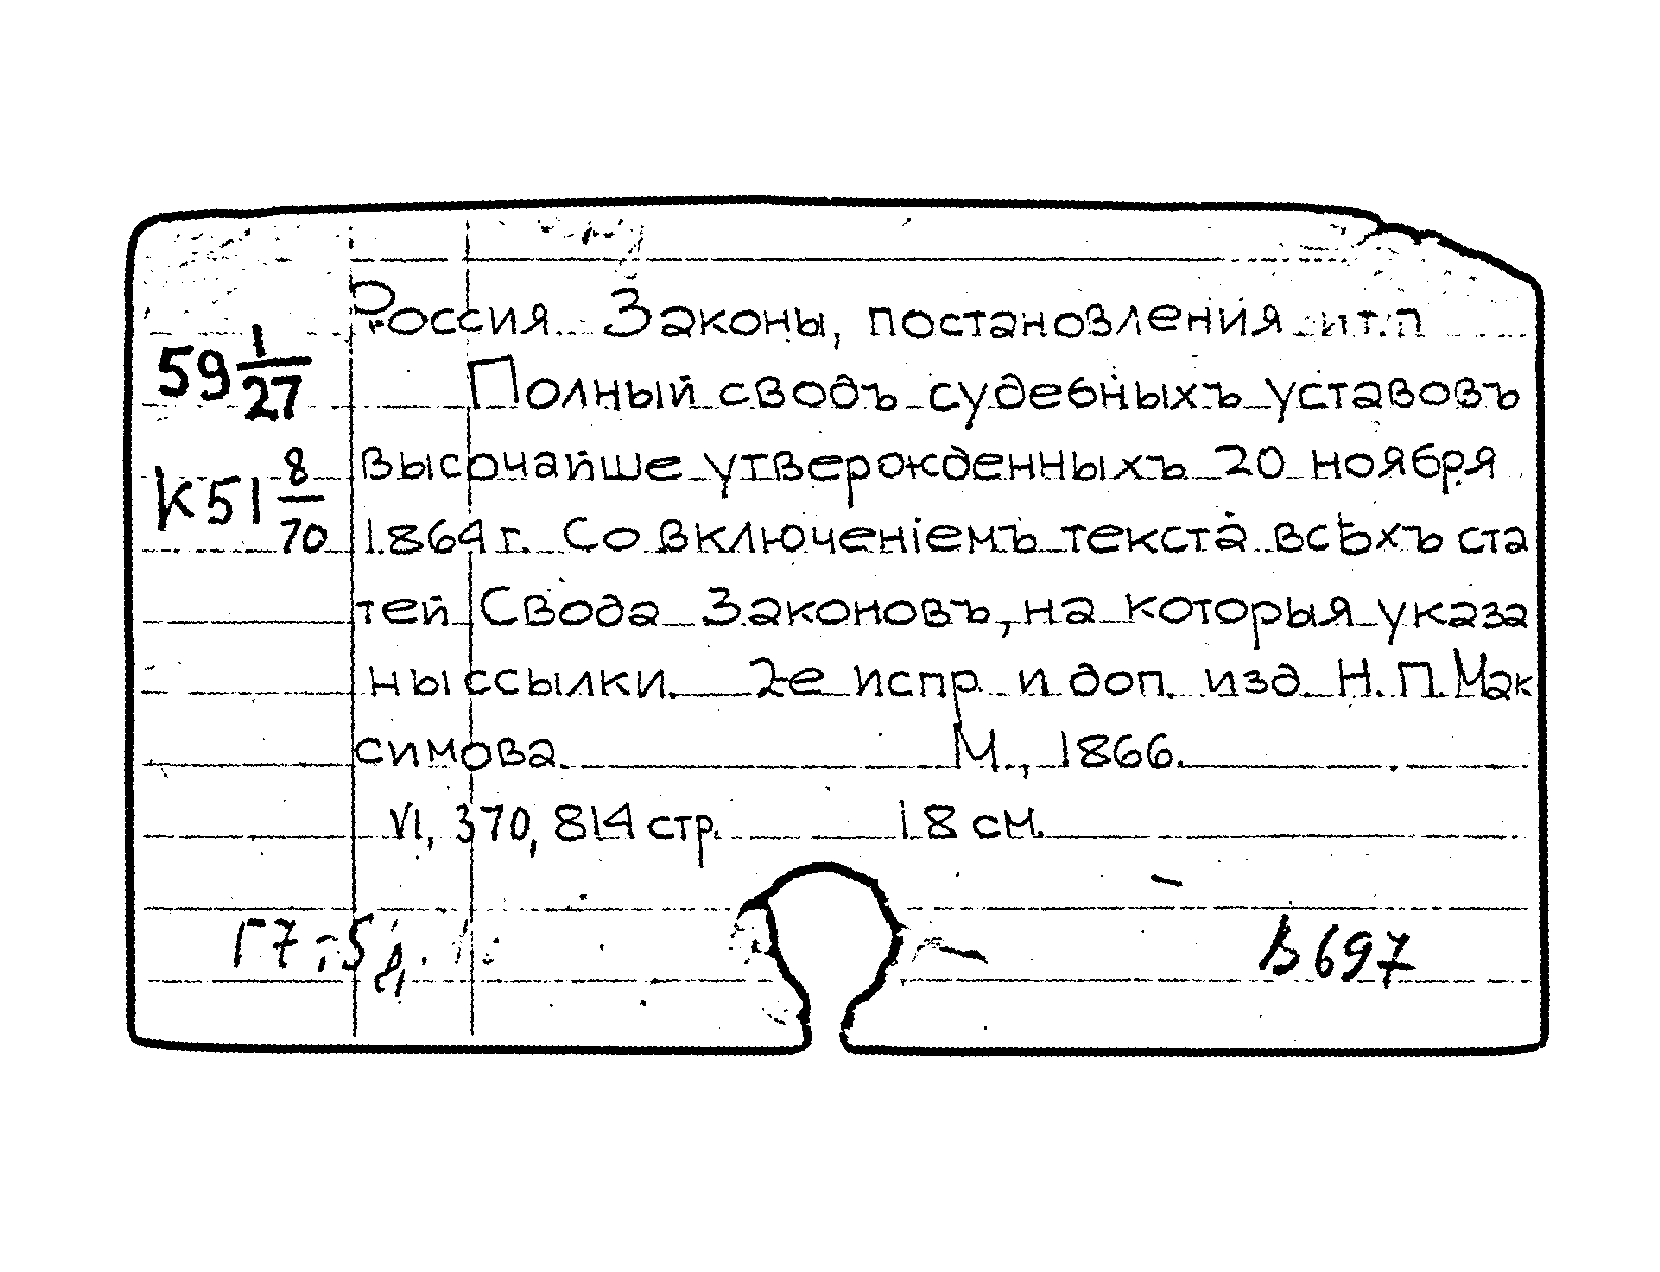 Россия. Законы, постановления и т. п
59 1/27
Полный сводъ судебныхъ уставовъ
высочайше утвержденныхъ 20 ноября
К51 8/70
1864 г. Со включеніемъ текста всѣхъ ста
тей Свода Законовъ, на которыя указа
ны ссылки. 2-е испр. и доп. изд. Н. П. Мак
симова. М., 1866.
VI, 370, 814 стр. 18 см.
В 697